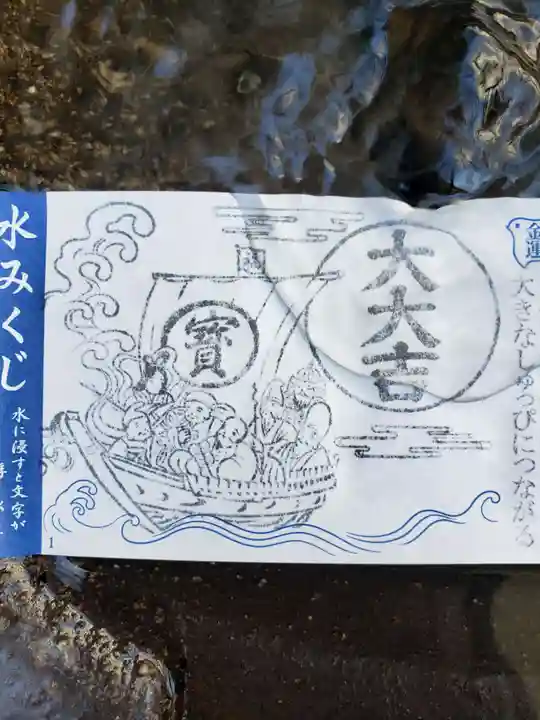 金運
大きなしゅっぴにつながる
大大吉
寳
水みくじ
水に浸すと文字が
1